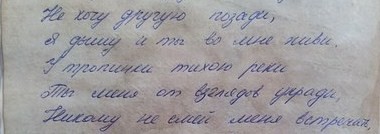 Не хочу другую позади,
Я дышу и ты во мне живи.
У тропинки тихою реки
Ты меня от взглядов укради,
Никому не смей меня встречать